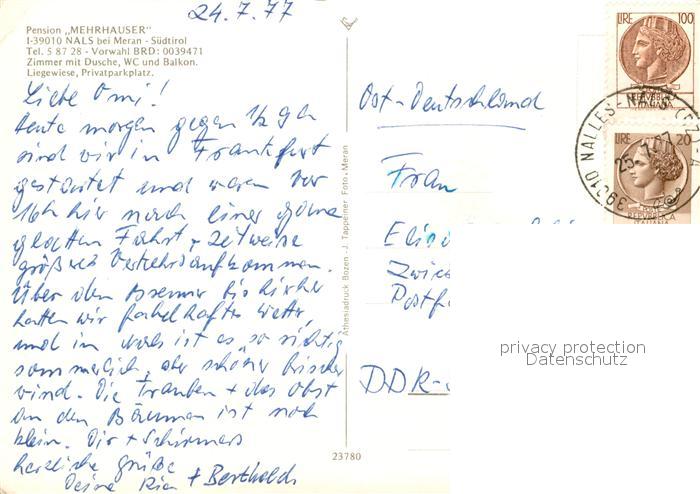 24.7.77
Pension „MEHRHAUSER"
I-39010 NALS bei Meran - Südtirol
Tel. 5 87 28 - Vorwahl BRD: 0039471
Zimmer mit Dusche, WC und Balkon.
Liegewiese, Privatparkplatz.
Liebe Omi!
Heute morgen gegen ½ 9h
sind wir in Frankfurt
gestartet und waren vor
16h hier nach einer
glatten Fahrt, zeitweise
größeres Verkehrsaufkommen.
Über den Brenner bis hierher
hatten wir fabelhaftes Wetter,
und in Nals ist es so richtig
sommerlich, aber schöner frischer
Wind. Die Trauben + das Obst
an den Bäumen ist noch
klein. Dir + Schirmers
herzliche Grüße
Deine + Berthold
Athesiadruck Bozen - J. Tappeiner Foto, Meran
23780
Ost-Deutschland
Frau
Zwick
Postf
DDR-
LIRE 100
REPVBBLICA
ITALIANA
LIRE 20
REPVBBLICA
ITALIANA
39010 NALLES
privacy protection
Datenschutz